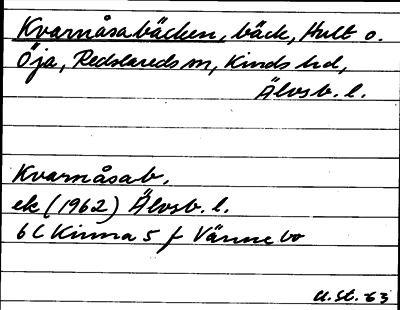 Kvarnåsabäcken, bäck, Hult o.
Öja, Redslareds sn, Kinds hd,
Älvsb. l.
Kvarnåsab.
ek (1962) Älvsb. l.
6C Kinna 5 f Vännebo
U.St. 63